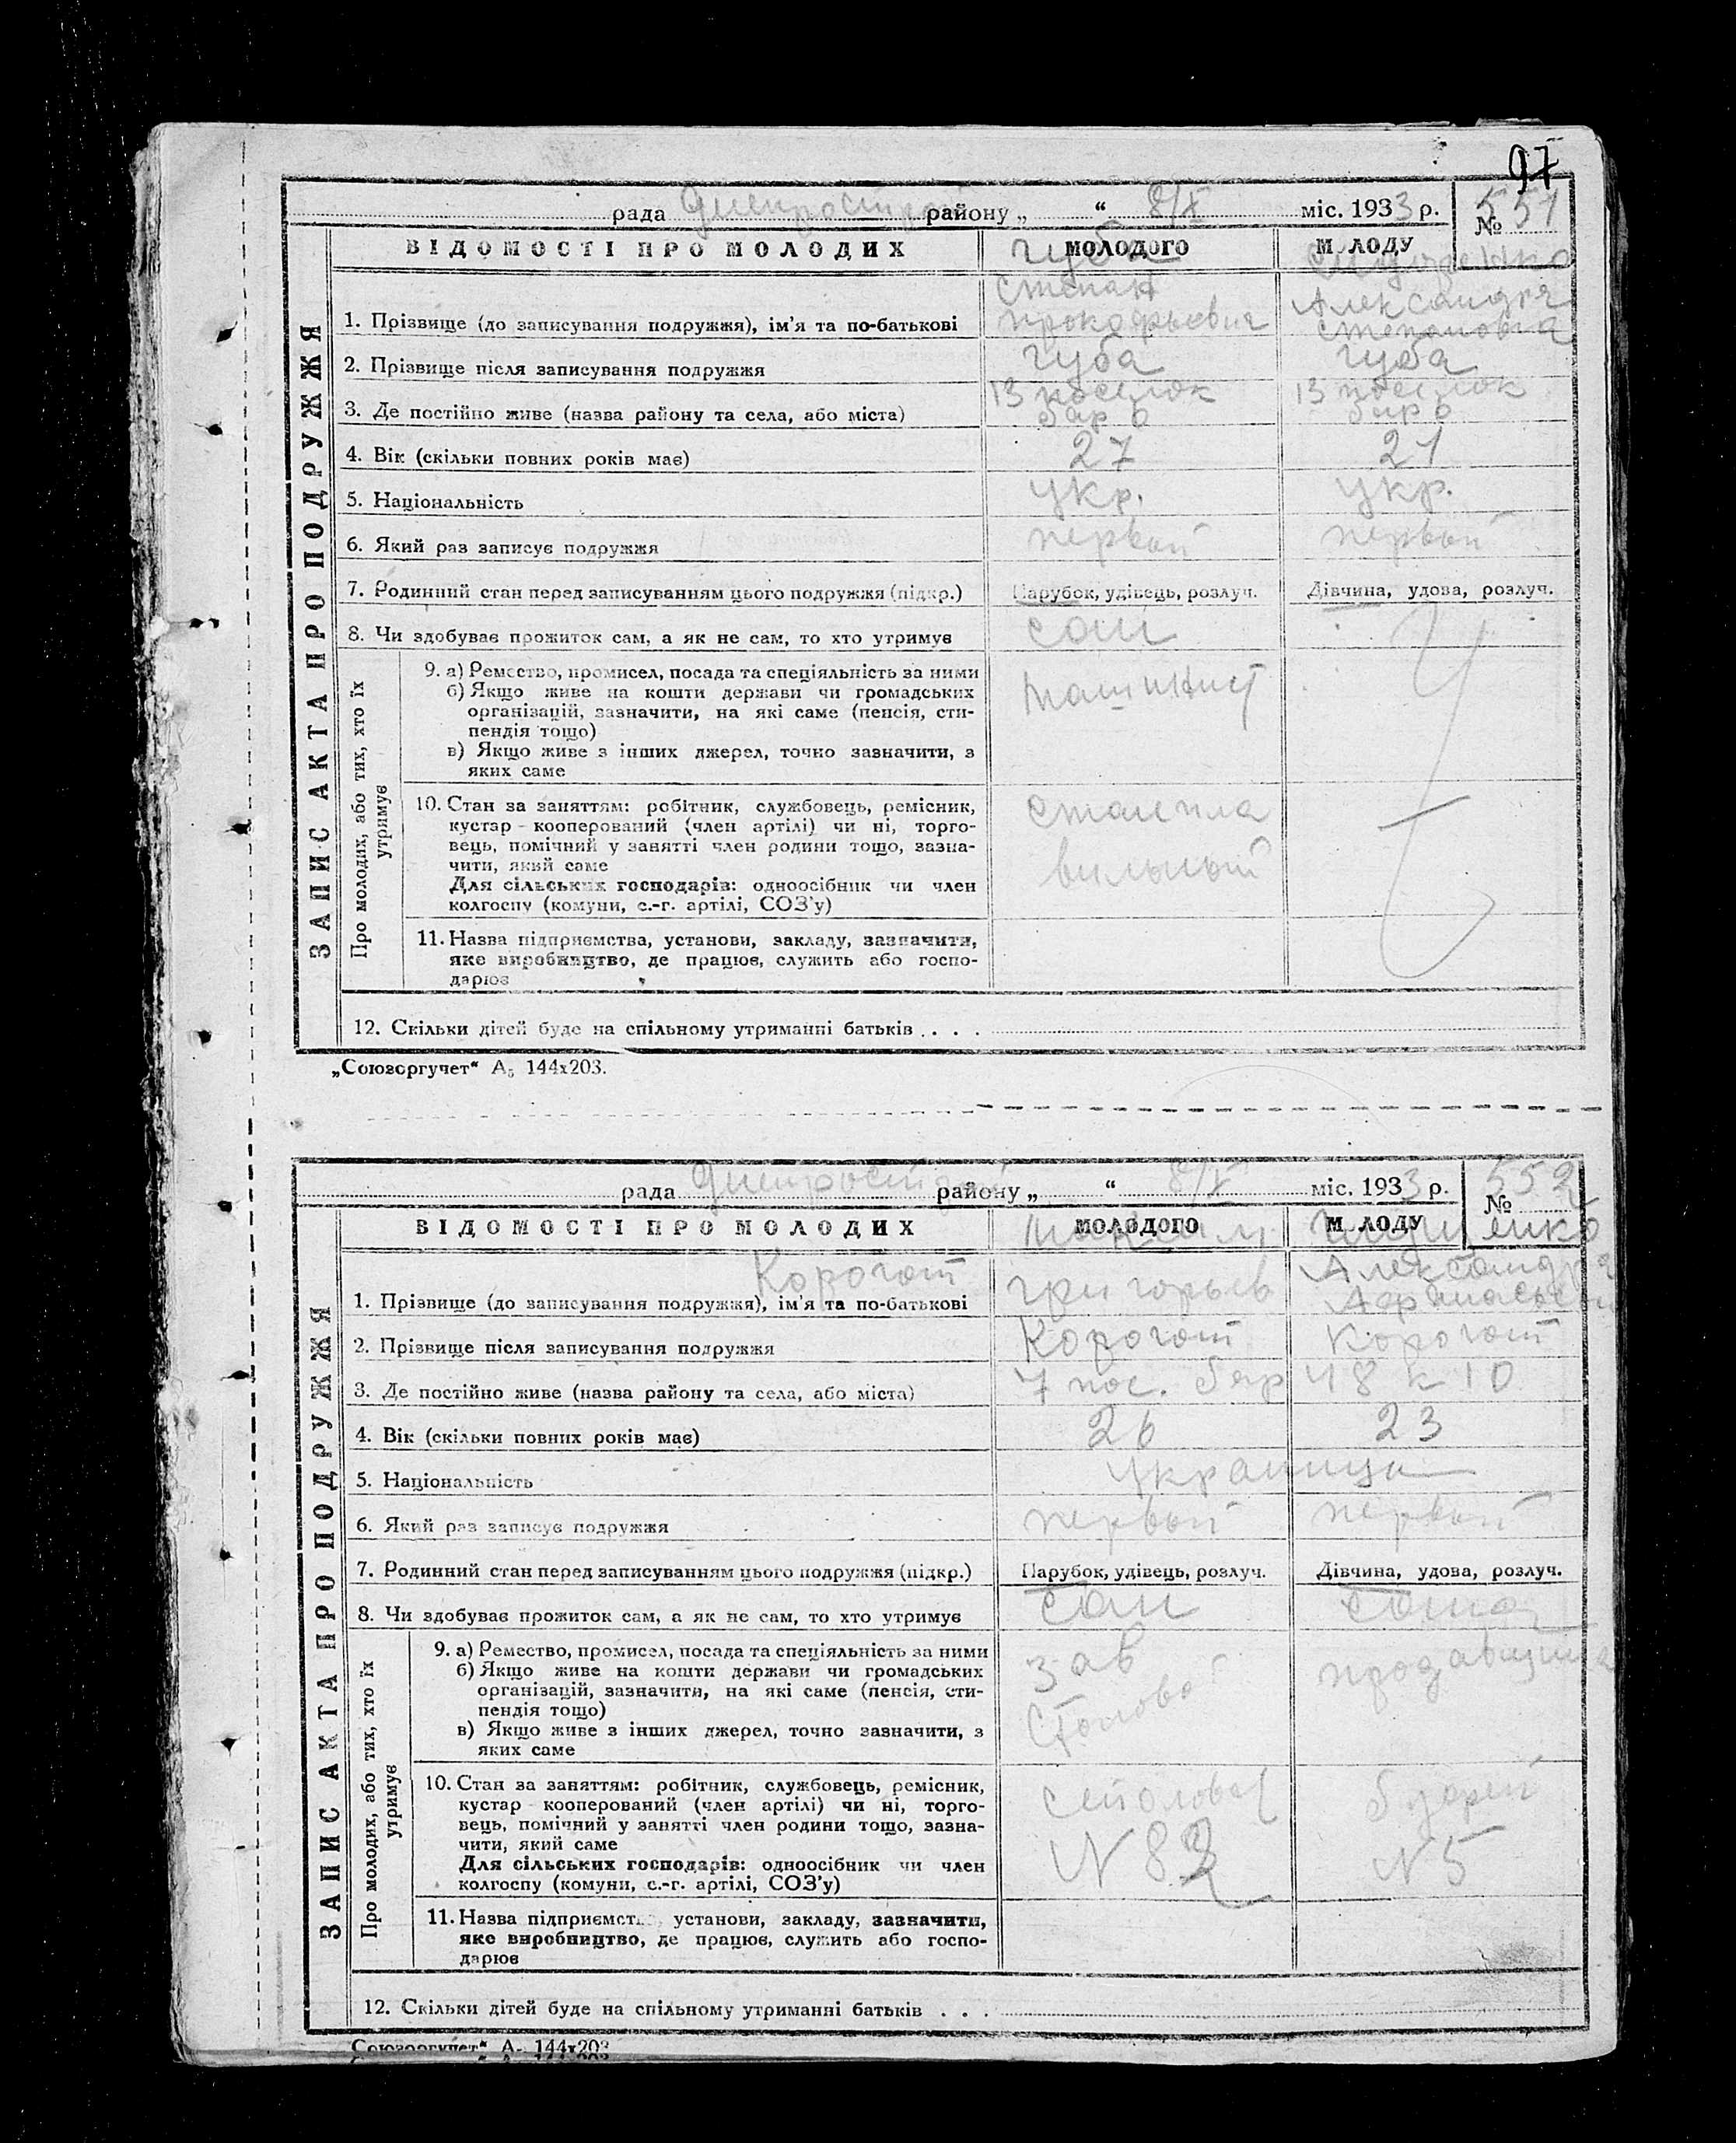 97
рада Днепрострой району „ “ 8/X міс. 1933 р. № 551
ВІДОМОСТІ ПРО МОЛОДИХ МОЛОДОГО М ЛОДУ
Губа
Степан Александра
1. Прізвище (до записування подружжя), ім'я та по-батькові Прокофьевич Степановна
2. Прізвище після записування подружжя Губа Губа
3. Де постійно живе (назва району та села, або міста) 13 поселок 13 поселок
4. Вік (скільки повних років має) 27 21
5. Національність Укр. Укр.
6. Який раз записує подружжя первый первый
7. Родинний стан перед записуванням цього подружжя (підкр.) Парубок, удівець, розлуч. Дівчина, удова, розлуч.
8. Чи здобуває прожиток сам, а як не сам, то хто утримує сам
9. а) Ремество, промисел, посада та спеціяльність за ними
б) Якщо живе на кошти держави чи громадських
організацій, зазначити, на які саме (пенсія, сти-
пендія тощо)
в) Якщо живе з інших джерел, точно зазначити, з
яких саме
машинист
10. Стан за заняттям: робітник, службовець, ремісник,
кустар-кооперований (член артілі) чи ні, торго-
вець, помічний у занятті член родини тощо, зазна-
чити, який саме
Для сільських господарів: одноосібник чи член
колгоспу (комуни, с.-г. артілі, СОЗ'у)
сталепла
вильный
11. Назва підприємства, установи, закладу, зазначити,
яке виробництво, де працює, служить або госпо-
дарює
12. Скільки дітей буде на спільному утриманні батьків . . . .
ЗАПИС АКТА ПРО ПОДРУЖЖЯ
Про молодих, або тих, хто їх
утримує
„Союзоргучет“ А₅ 144х203.
рада Днепрострой району „ “ 8/X міс. 1933 р. № 552
ВІДОМОСТІ ПРО МОЛОДИХ МОЛОДОГО М ЛОДУ
Корогот Максим Александра
1. Прізвище (до записування подружжя), ім'я та по-батькові Григорьев Афанасьевн
2. Прізвище після записування подружжя Корогот Корогот
3. Де постійно живе (назва району та села, або міста) 7 пос. бар 48 к 10
4. Вік (скільки повних років має) 26 23
5. Національність Украинцы
6. Який раз записує подружжя первый первый
7. Родинний стан перед записуванням цього подружжя (підкр.) Парубок, удівець, розлуч. Дівчина, удова, розлуч.
8. Чи здобуває прожиток сам, а як не сам, то хто утримує сам сама
9. а) Ремество, промисел, посада та спеціяльність за ними
б) Якщо живе на кошти держави чи громадських
організацій, зазначити, на які саме (пенсія, сти-
пендія тощо)
в) Якщо живе з інших джерел, точно зазначити, з
яких саме
зав продавщица
столовой
10. Стан за заняттям: робітник, службовець, ремісник,
кустар кооперований (член артілі) чи ні, торго-
вець, помічний у занятті член родини тощо, зазна-
чити, який саме
Для сільських господарів: одноосібник чи член
колгоспу (комуни, с.-г. артілі, СОЗ'у)
столовая буфет
N 82 N 5
11. Назва підприємства, установи, закладу, зазначити,
яке виробництво, де працює, служить або госпо-
дарює
12. Скільки дітей буде на спільному утриманні батьків . . .
ЗАПИС АКТА ПРО ПОДРУЖЖЯ
Про молодих, або тих, хто їх
утримує
Союзоргучет“ А₅ 144х203